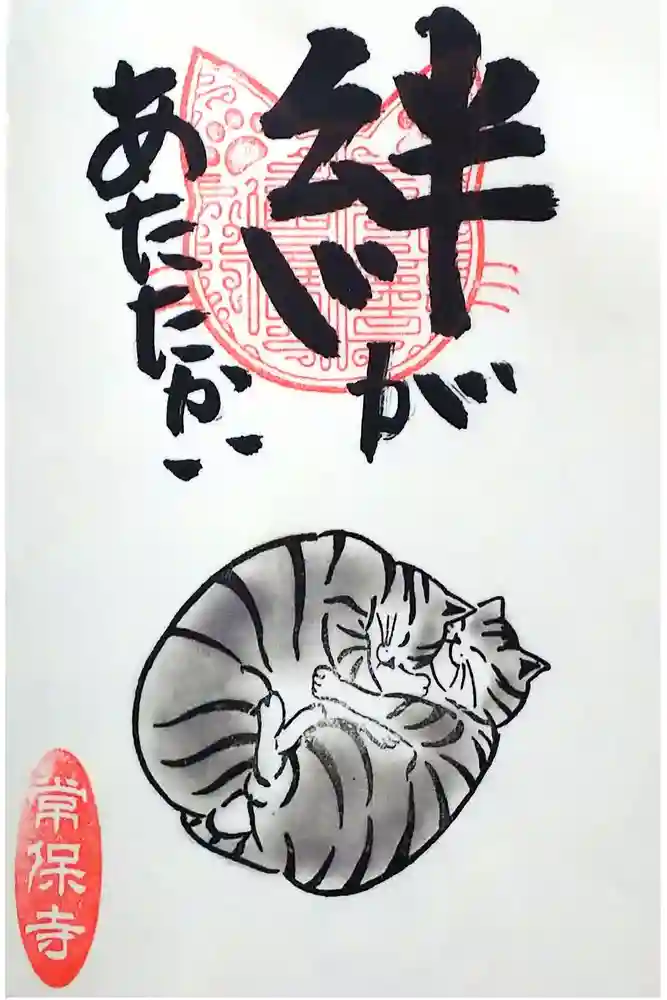 絆が
あたたかい
常保寺